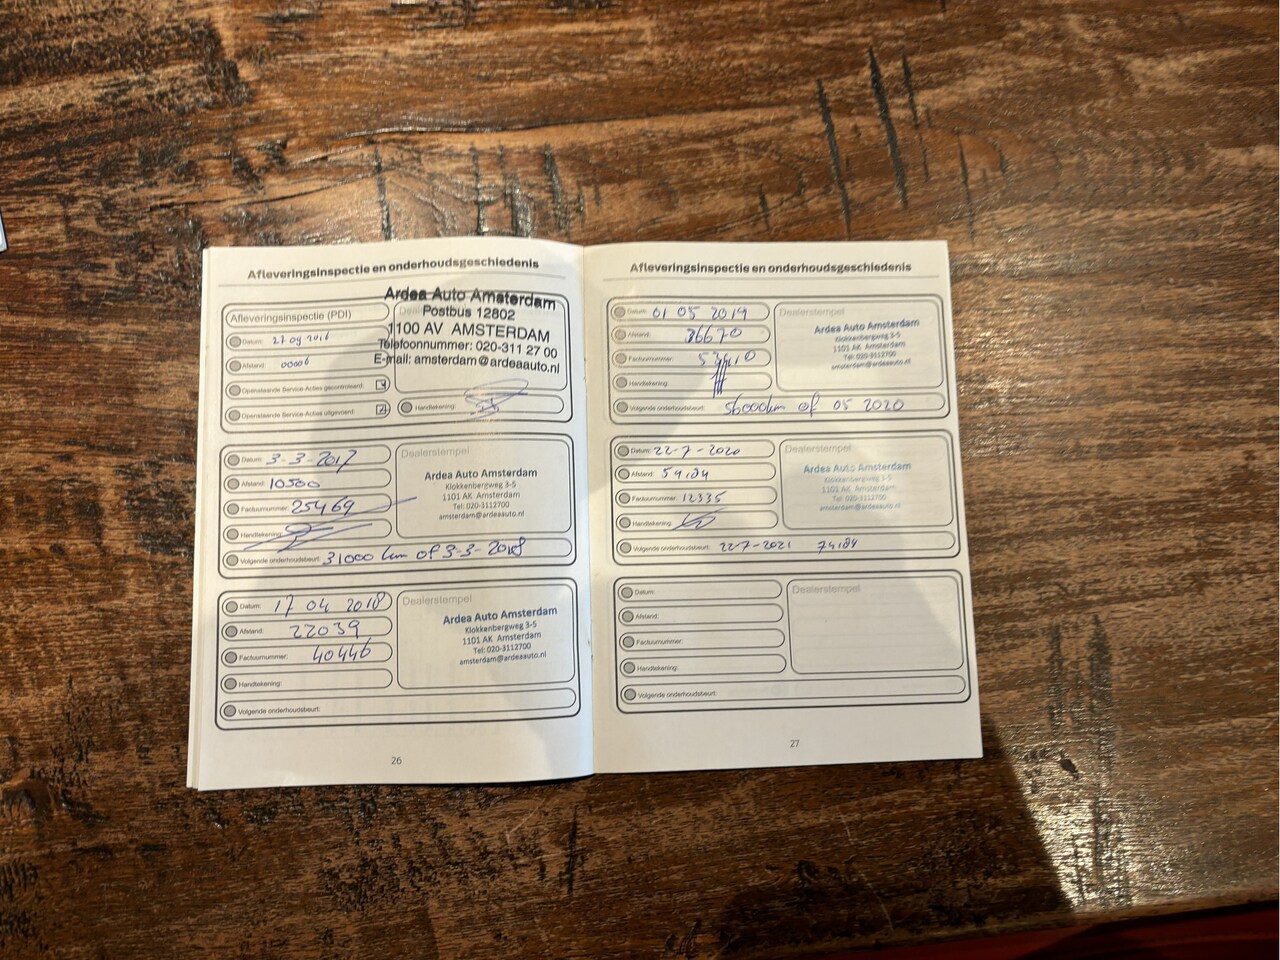 Afleveringsinspectie en onderhoudsgeschiedenis
Afleveringsinspectie (PDI)
Datum: 27 09 2016
Afstand: 00006
Openstaande Service-Acties gecontroleerd:
Openstaande Service-Acties uitgevoerd:
Ardea Auto Amsterdam
Postbus 12802
1100 AV AMSTERDAM
Telefoonnummer: 020-311 27 00
E-mail: amsterdam@ardeaauto.nl
Handtekening:
Datum: 3-3-2017
Afstand: 10500
Factuurnummer: 25469
Handtekening:
Dealerstempel
Ardea Auto Amsterdam
Klokkenbergweg 3-5
1101 AK Amsterdam
Tel: 020-3112700
amsterdam@ardeaauto.nl
Volgende onderhoudsbeurt: 31000 km of 3-3-2018
Datum: 17 04 2018
Afstand: 22039
Factuurnummer: 40446
Handtekening:
Dealerstempel
Ardea Auto Amsterdam
Klokkenbergweg 3-5
1101 AK Amsterdam
Tel: 020-3112700
amsterdam@ardeaauto.nl
Volgende onderhoudsbeurt:
26
Afleveringsinspectie en onderhoudsgeschiedenis
Datum: 01 05 2019
Afstand: 36670
Factuurnummer:
Handtekening:
Dealerstempel
Ardea Auto Amsterdam
Klokkenbergweg 3-5
1101 AK Amsterdam
Tel: 020-3112700
amsterdam@ardeaauto.nl
Volgende onderhoudsbeurt: 56000km of 05 2020
Datum: 22-7-2020
Afstand: 54184
Factuurnummer: 12335
Handtekening:
Dealerstempel
Ardea Auto Amsterdam
Klokkenbergweg 3-5
1101 AK Amsterdam
Tel: 020-3112700
amsterdam@ardeaauto.nl
Volgende onderhoudsbeurt: 22-7-2021 74184
Datum:
Afstand:
Factuurnummer:
Handtekening:
Dealerstempel
Volgende onderhoudsbeurt:
27